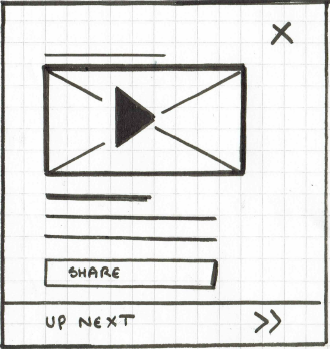 X
SHARE
UP NEXT >>